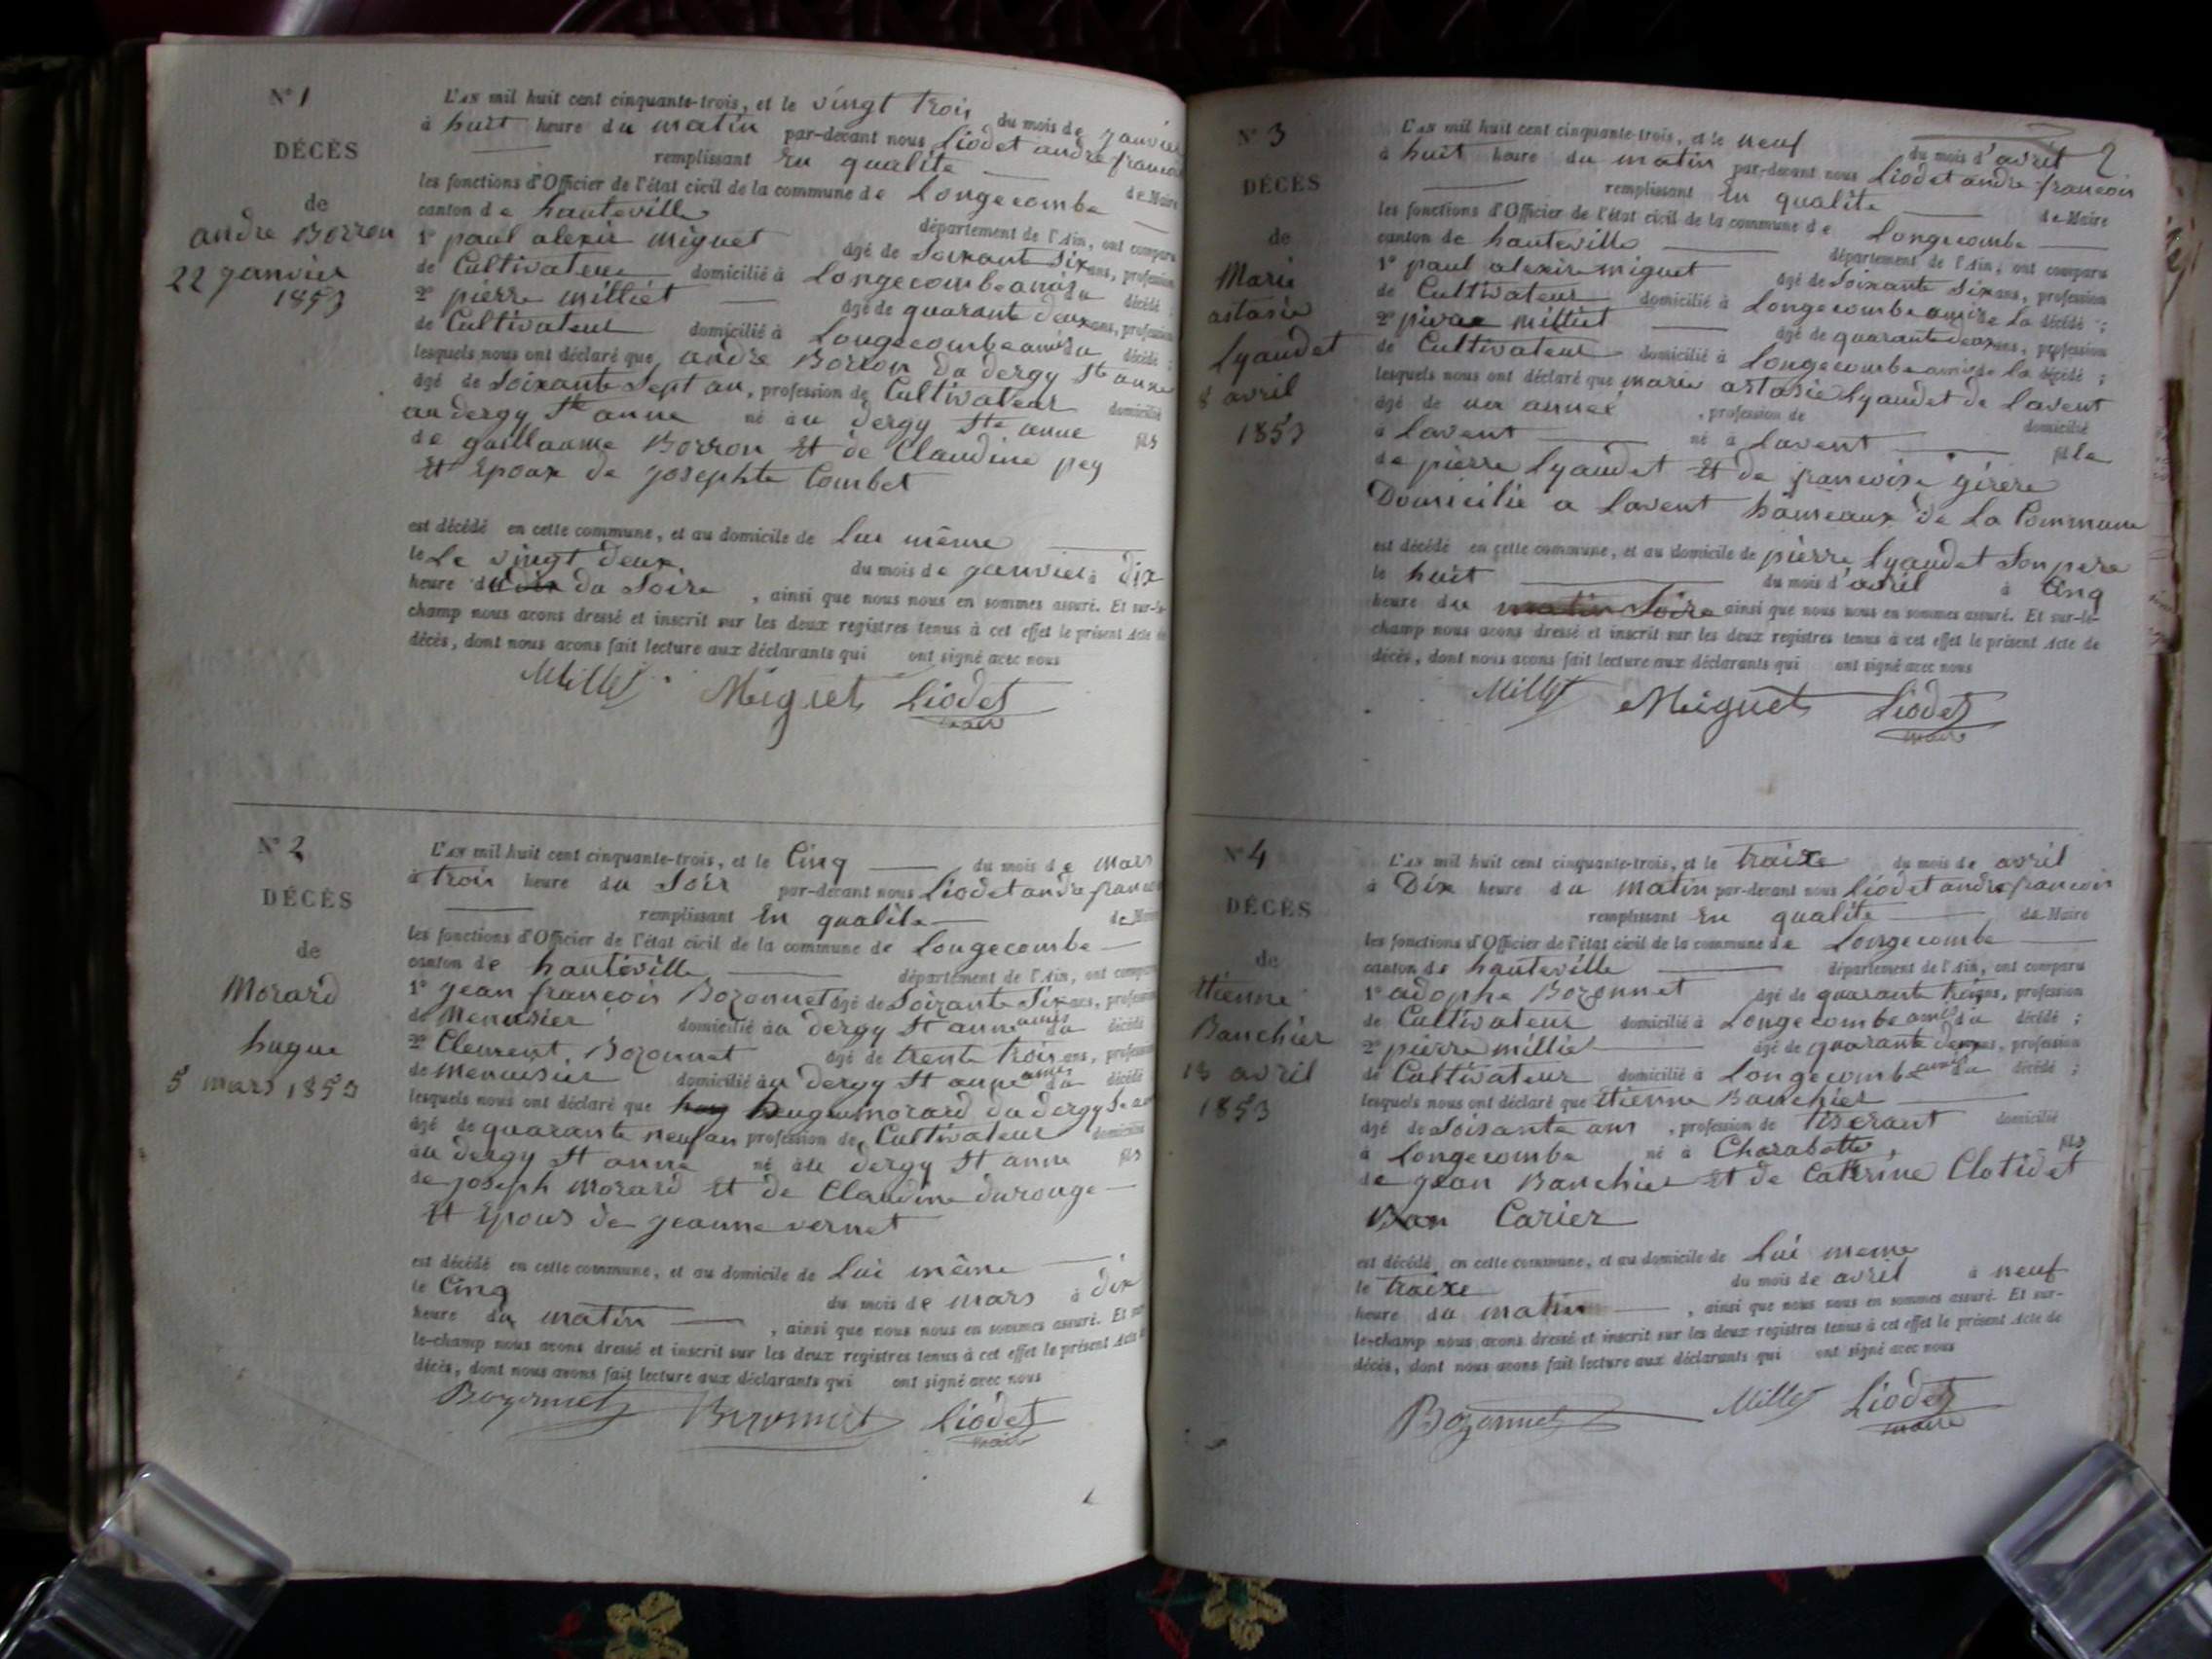 N° 1
DÉCÈS
de
andre Borron
22 janvier
1853
L'AN mil huit cent cinquante-trois, et le vingt trois du mois de janvier
à huit heure du matin par-devant nous Liodet andre francois
remplissant En qualite de Maire
les fonctions d'Officier de l'état civil de la commune de Longecombe
canton de hauteville département de l'Ain, ont comparu
1° paul alexis Miguet âgé de Soixante Six ans, profession
de Cultivateur domicilié à Longecombe amis du décédé ;
2° pierre milliet âgé de quarante deux ans, profession
de Cultivateur domicilié à Longecombe amis du décédé ;
lesquels nous ont déclaré que andre Borron du dergy Ste anne
âgé de Soixante Sept an, profession de Cultivateur domicilié
au dergy Ste anne né au dergy Ste anne fils
de guillaume Borron Et de Claudine pey
Et Epoux de josephte Combet
est décédé en cette commune, et au domicile de Lui même
le Le vingt deux du mois de janvier à dix
heure du Soire, ainsi que nous nous en sommes assuré. Et sur-le-
champ nous avons dressé et inscrit sur les deux registres tenus à cet effet le présent Acte de
décès, dont nous avons fait lecture aux déclarants qui ont signé avec nous
Milliet Miguet Liodet
maire
N° 2
DÉCÈS
de
Morard
hugue
5 mars 1853
L'AN mil huit cent cinquante-trois, et le Cinq du mois de Mars
à trois heure du Soir par-devant nous Liodet andre francois
remplissant En qualite de Maire
les fonctions d'Officier de l'état civil de la commune de Longecombe
canton de hauteville département de l'Ain, ont comparu
1° jean francois Bozonnet âgé de Soixante Six ans, profession
de Menusier domicilié au dergy St anne amis du décédé
2° Clement Bozonnet âgé de trente trois ans, profession
de Menusier domicilié au dergy St anne amis du décédé
lesquels nous ont déclaré que hugue morard du dergy St anne
âgé de quarante neuf an profession de Cultivateur domicilié
au dergy St anne né au dergy St anne fils
de joseph Morard Et de Claudine durouge
Et Epous de jeanne vernet
est décédé en cette commune, et au domicile de Lui même
le Cinq du mois de mars à dix
heure du matin, ainsi que nous nous en sommes assuré. Et sur-
le-champ nous avons dressé et inscrit sur les deux registres tenus à cet effet le présent Acte de
décès, dont nous avons fait lecture aux déclarants qui ont signé avec nous
Bozonnet Bozonnet Liodet
maire
2
N° 3
DÉCÈS
de
Marie
astasie
Lyaudet
8 avril
1853
L'AN mil huit cent cinquante-trois, et le neuf du mois d'avril
à huit heure du matin par-devant nous Liodet andre francois
remplissant En qualite de Maire
les fonctions d'Officier de l'état civil de la commune de Longecombe
canton de hauteville département de l'Ain, ont comparu
1° paul alexis miguet âgé de Soixante Six ans, profession
de Cultivateur domicilié à Longecombe amis de La décédé ;
2° pierre milliet âgé de quarante deux ans, profession
de Cultivateur domicilié à Longecombe amis de la décédé ;
lesquels nous ont déclaré que marie astasie Lyaudet de Lavent
âgé de un année, profession de domicilié
à Lavent né à Lavent fille
de pierre Lyaudet Et de francoise girere
Domicilie a Lavent hameaux de La Commune
est décédé en cette commune, et au domicile de pierre Lyaudet Son pere
le huit du mois d'avril à Cinq
heure du matin Soire ainsi que nous nous en sommes assuré. Et sur-le-
champ nous avons dressé et inscrit sur les deux registres tenus à cet effet le présent Acte de
décès, dont nous avons fait lecture aux déclarants qui ont signé avec nous
Milliet Miguet Liodet
maire
N° 4
DÉCÈS
de
Etienne
Banchier
13 avril
1853
L'AN mil huit cent cinquante-trois, et le traixe du mois de avril
à Dix heure du Matin par-devant nous Liodet andre francois
remplissant En qualite de Maire
les fonctions d'Officier de l'état civil de la commune de Longecombe
canton de hauteville département de l'Ain, ont comparu
1° adophe Bozonnet âgé de quarante ans, profession
de Cultivateur domicilié à Longecombe amis du décédé ;
2° pierre milliet âgé de quarante deux ans, profession
de Cultivateur domicilié à Longecombe amis du décédé ;
lesquels nous ont déclaré que Etienne Banchier
âgé de Soisante ans, profession de tiserant domicilié
à Longecombe né à Charabotte, fils
de jean Banchier Et de Catrine Clotidet
Carier
est décédé en cette commune, et au domicile de Lui meme
le traixe du mois de avril à neuf
heure du matin, ainsi que nous nous en sommes assuré. Et sur-
le-champ nous avons dressé et inscrit sur les deux registres tenus à cet effet le présent Acte de
décès, dont nous avons fait lecture aux déclarants qui ont signé avec nous
Bozonnet Milliet Liodet
maire